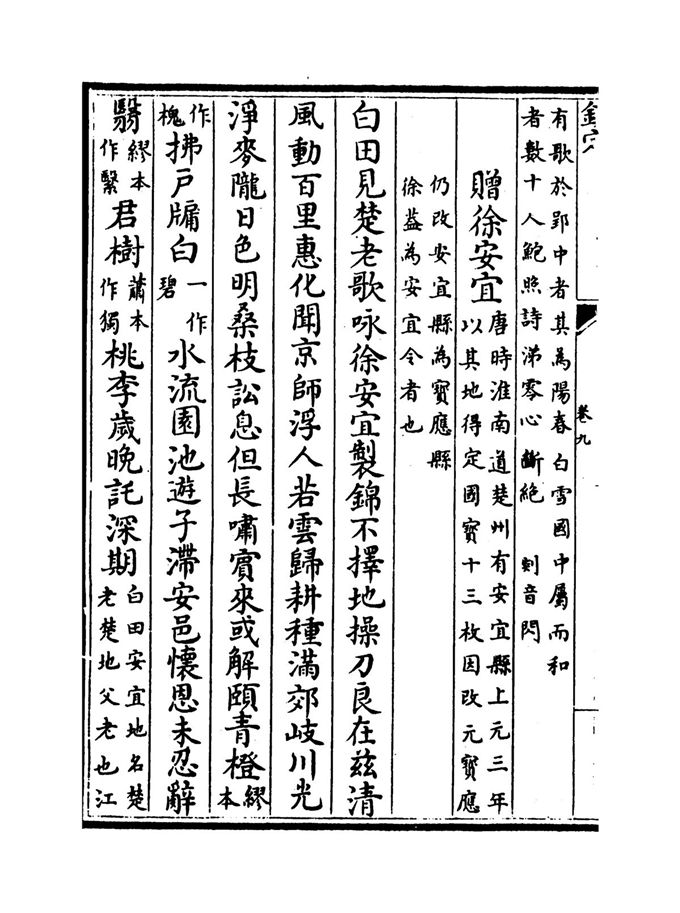 卷九
有歌於郢中者其為陽春白雪國中屬而和
者數十人鮑照詩涕零心斷絶　剡音閃
贈徐安宜唐時淮南道楚州有安宜縣上元三年
以其地得定國寶十三枚因改元寶應
仍改安宜縣為寶應縣
徐葢為安宜令者也
白田見楚老歌咏徐安宜製錦不擇地操刀良在兹清
風動百里惠化聞京師浮人若雲歸耕種滿郊岐川光
淨麥隴日色明桑枝訟息但長嘯賔來或解頤青橙繆本
作槐拂戶牖白一作碧水流園池遊子滯安邑懷恩未忍辭
翳繆本作繄君樹蕭本作獨桃李歲晚託深期白田安宜地名楚
老楚地父老也江